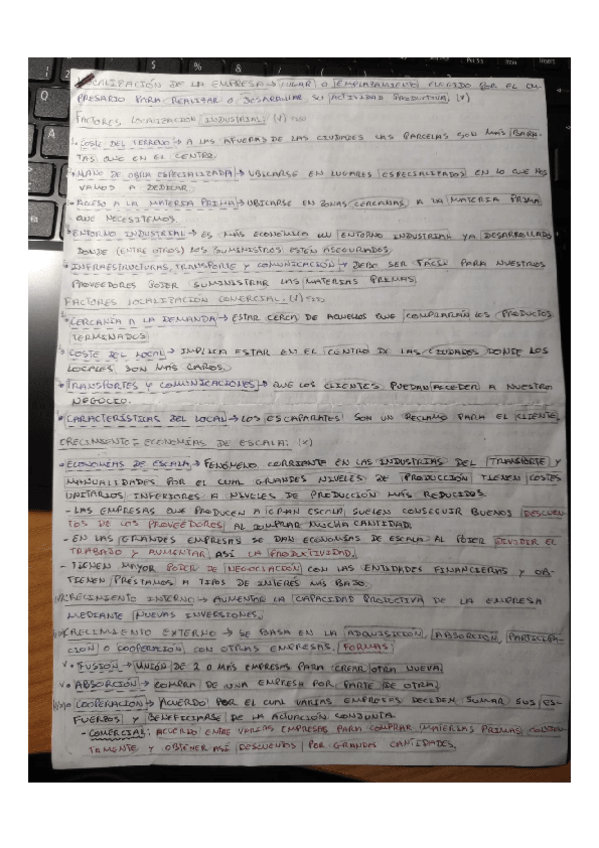 LOCALIZACIÓN DE LA EMPRESA → LUGAR O EMPLAZAMIENTO ELEGIDO POR EL EM-
PRESARIO PARA REALIZAR O DESARROLLAR SU ACTIVIDAD PRODUCTIVA. (*)
FACTORES LOCALIZACIÓN INDUSTRIAL:
COSTE DEL TERRENO → A LAS AFUERAS DE LAS CIUDADES LAS PARCELAS SON MÁS BARA-
TAS QUE EN EL CENTRO.
MANO DE OBRA ESPECIALIZADA → UBICARSE EN LUGARES ESPECIALIZADOS EN LO QUE NOS
VAMOS A DEDICAR.
ACCESO A LA MATERIA PRIMA → UBICARSE EN ZONAS CERCANAS A LA MATERIA PRIMA
QUE NECESITEMOS.
ENTORNO INDUSTRIAL → ES MÁS ECONÓMICA UN ENTORNO INDUSTRIAL YA DESARROLLADO
DONDE (ENTRE OTROS) LOS SUMINISTROS ESTÉN ASEGURADOS.
INFRAESTRUCTURAS, TRANSPORTE Y COMUNICACIÓN → DEBE SER FÁCIL PARA NUESTROS
PROVEEDORES PODER SUMINISTRAR LAS MATERIAS PRIMAS.
FACTORES LOCALIZACIÓN COMERCIAL:
CERCANÍA A LA DEMANDA → ESTAR CERCA DE AQUELLOS QUE COMPRARÁN LOS PRODUCTOS
TERMINADOS
COSTE DEL LOCAL → IMPLICA ESTAR EN EL CENTRO DE LAS CIUDADES DONDE LOS
LOCALES SON MÁS CAROS.
TRANSPORTES Y COMUNICACIONES → QUE LOS CLIENTES PUEDAN ACCEDER A NUESTRO
NEGOCIO.
CARACTERÍSTICAS DEL LOCAL → LOS ESCAPARATES SON UN RECLAMO PARA EL CLIENTE.
CRECIMIENTO: ECONOMÍAS DE ESCALA: (*)
• ECONOMÍAS DE ESCALA → FENÓMENO CORRIENTE EN LAS INDUSTRIAS DEL TRANSPORTE Y
MANUALIDADES POR EL CUAL GRANDES NIVELES DE PRODUCCIÓN TIENEN COSTES
UNITARIOS INFERIORES A NIVELES DE PRODUCCIÓN MÁS REDUCIDOS.
- LAS EMPRESAS QUE PRODUCEN A GRAN ESCALA SUELEN CONSEGUIR BUENOS DESCUEN-
TOS DE LOS PROVEEDORES AL COMPRAR MUCHA CANTIDAD.
- EN LAS GRANDES EMPRESAS SE DAN ECONOMÍAS DE ESCALA AL PODER DIVIDIR EL
TRABAJO Y AUMENTAR ASÍ LA PRODUCTIVIDAD.
- TIENEN MAYOR PODER DE NEGOCIACIÓN CON LAS ENTIDADES FINANCIERAS Y OB-
TIENEN PRÉSTAMOS A TIPOS DE INTERÉS MÁS BAJO.
CRECIMIENTO INTERNO → AUMENTAR LA CAPACIDAD PRODUCTIVA DE LA EMPRESA
MEDIANTE NUEVAS INVERSIONES.
CRECIMIENTO EXTERNO → SE BASA EN LA ADQUISICIÓN, ABSORCIÓN, PARTICIPA-
CIÓN O COOPERACIÓN CON OTRAS EMPRESAS. FORMAS
FUSIÓN → UNIÓN DE 2 O MÁS EMPRESAS PARA CREAR OTRA NUEVA
ABSORCIÓN → COMPRA DE UNA EMPRESA POR PARTE DE OTRA
COOPERACIÓN → ACUERDO POR EL CUAL VARIAS EMPRESAS DECIDEN SUMAR SUS ES-
FUERZOS Y BENEFICIARSE DE LA ACTUACIÓN CONJUNTA
- COMERCIAL: ACUERDO ENTRE VARIAS EMPRESAS PARA COMPRAR MATERIAS PRIMAS CONJUN-
TAMENTE Y OBTENER ASÍ DESCUENTOS POR GRANDES CANTIDADES.